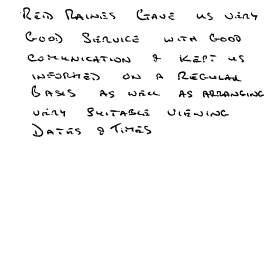 REID RAINES GAVE US VERY
GOOD SERVICE WITH GOOD
COMUNICATION & KEPT US
INFORMED ON A REGULAR
BASIS AS WELL AS ARRANGING
VERY SUITABLE VIEWING
DATES & TIMES